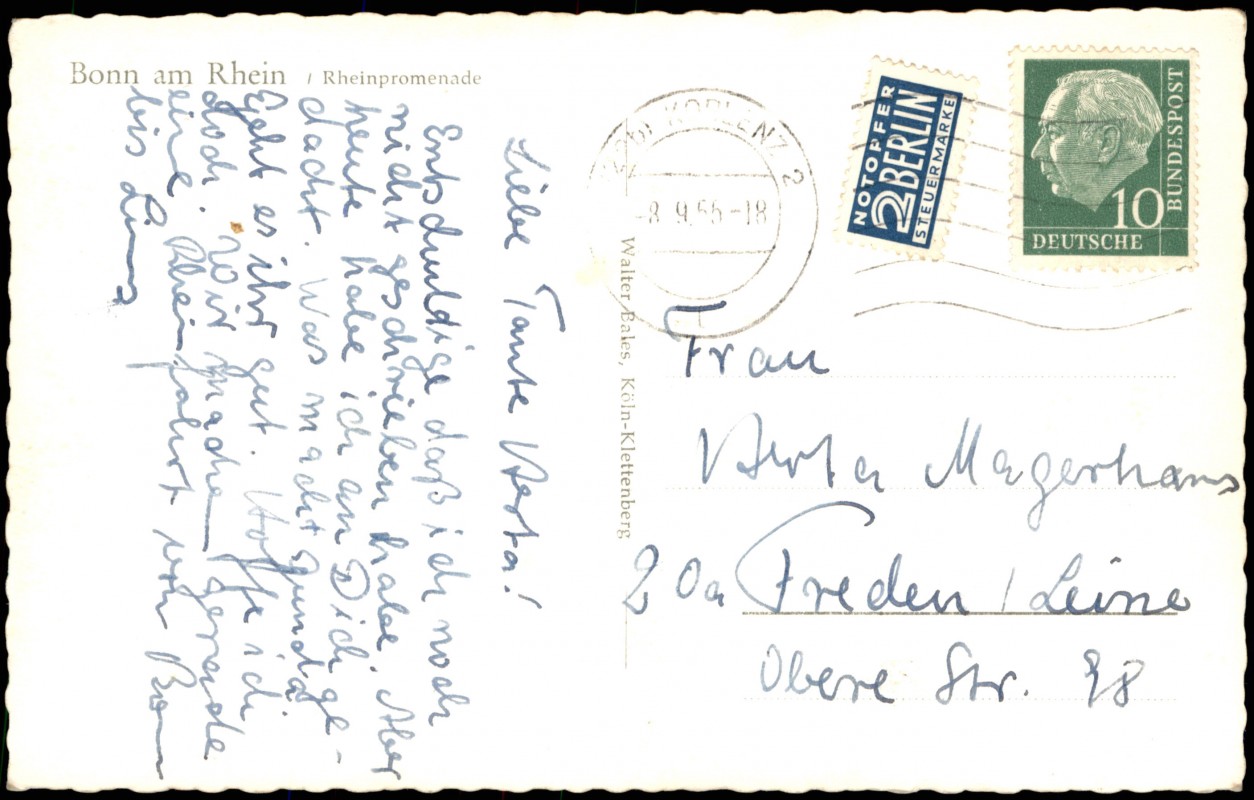 Bonn am Rhein / Rheinpromenade
Liebe Tante Herta!
Entschuldige daß ich noch
nicht geschrieben habe. Aber
heute habe ich an Dich ge-
dacht. Was macht Gunda
Geht es ihr gut. Hoffe ich
doch. Wir machen gerade
eine Rheinfahrt von Bonn
bis Linz
Walter Bales, Köln-Klettenberg
KOBLENZ 2
-8.9.56-18
NOTOPFER
2 BERLIN
STEUERMARKE
10
DEUTSCHE
BUNDESPOST
Frau
Herta Magerhans
20a Freden / Leine
Obere Str. 98